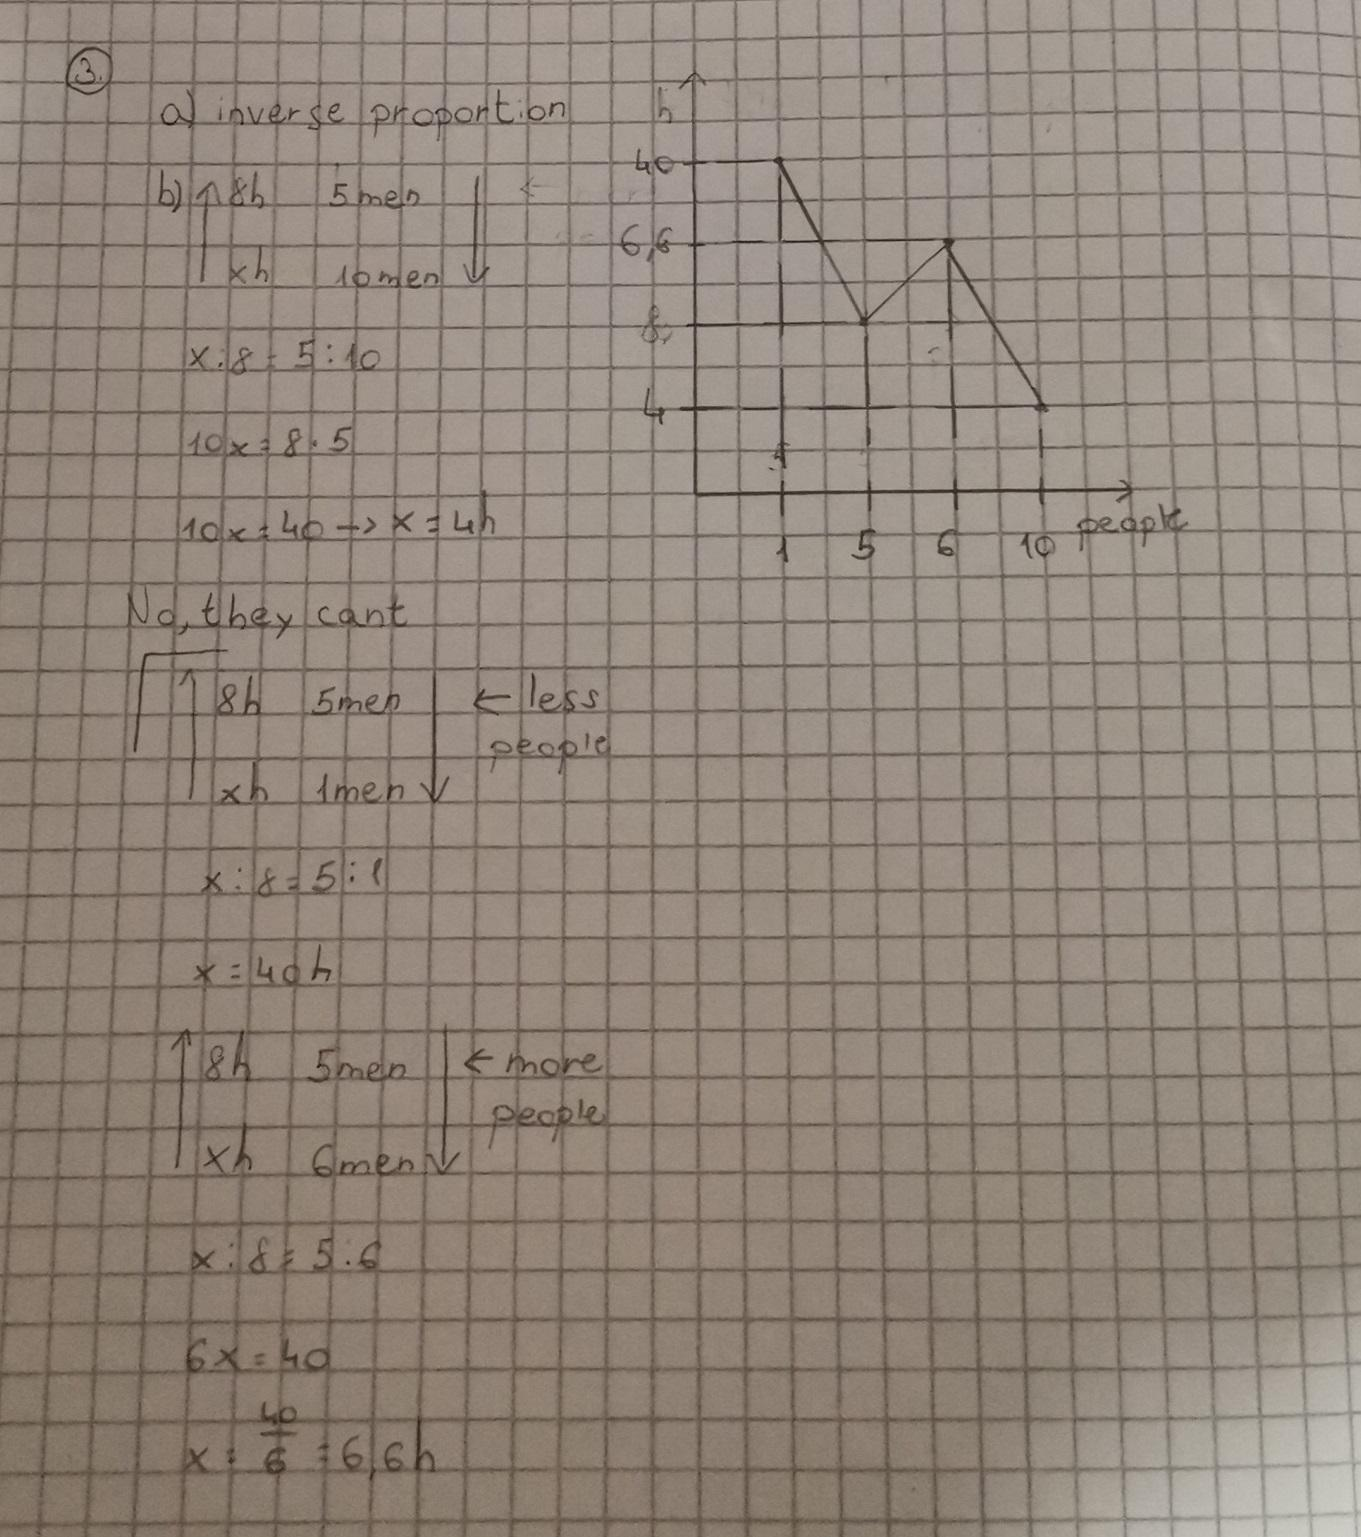 3.
a) inverse proportion
b) ↑ 8h 5men ↓ ←
xh 10men
x:8=5:10
10x=8·5
10x=40→x=4h
No, they cant
↑ 8h 5men ↓ ← less
people
xh 1men
x:8=5:1
x=40h
↑ 8h 5men ↓ ← more
people
xh 6men
x:8=5:6
6x=40
x=40/6=6,6h
h
40
6,6
8
4
1
1 5 6 10 people